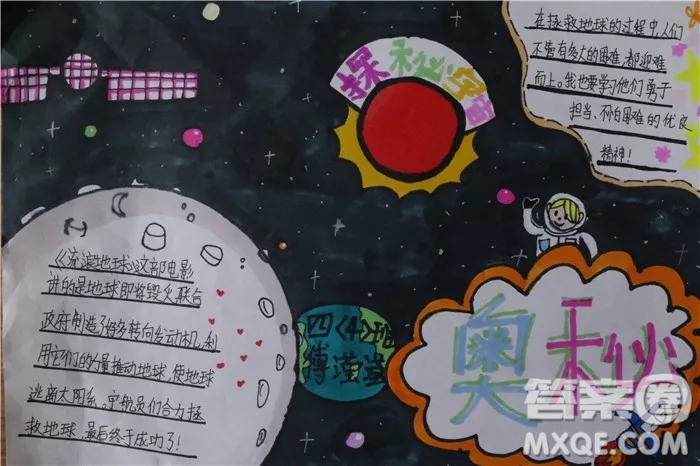 探秘宇宙
在拯救地球的过程中,人们
不管有多大的困难,都迎难
而上。我也要学习他们勇于
担当、不怕困难的优良
精神!
《流浪地球》这部电影
讲的是地球即将毁灭,联合
政府制造了很多转向发动机,利
用它们的力量推动地球,使地球
逃离太阳系。
救地球,最后终于成功了!
四〈4〉班
奥秘
答案圈
MXQE.COM